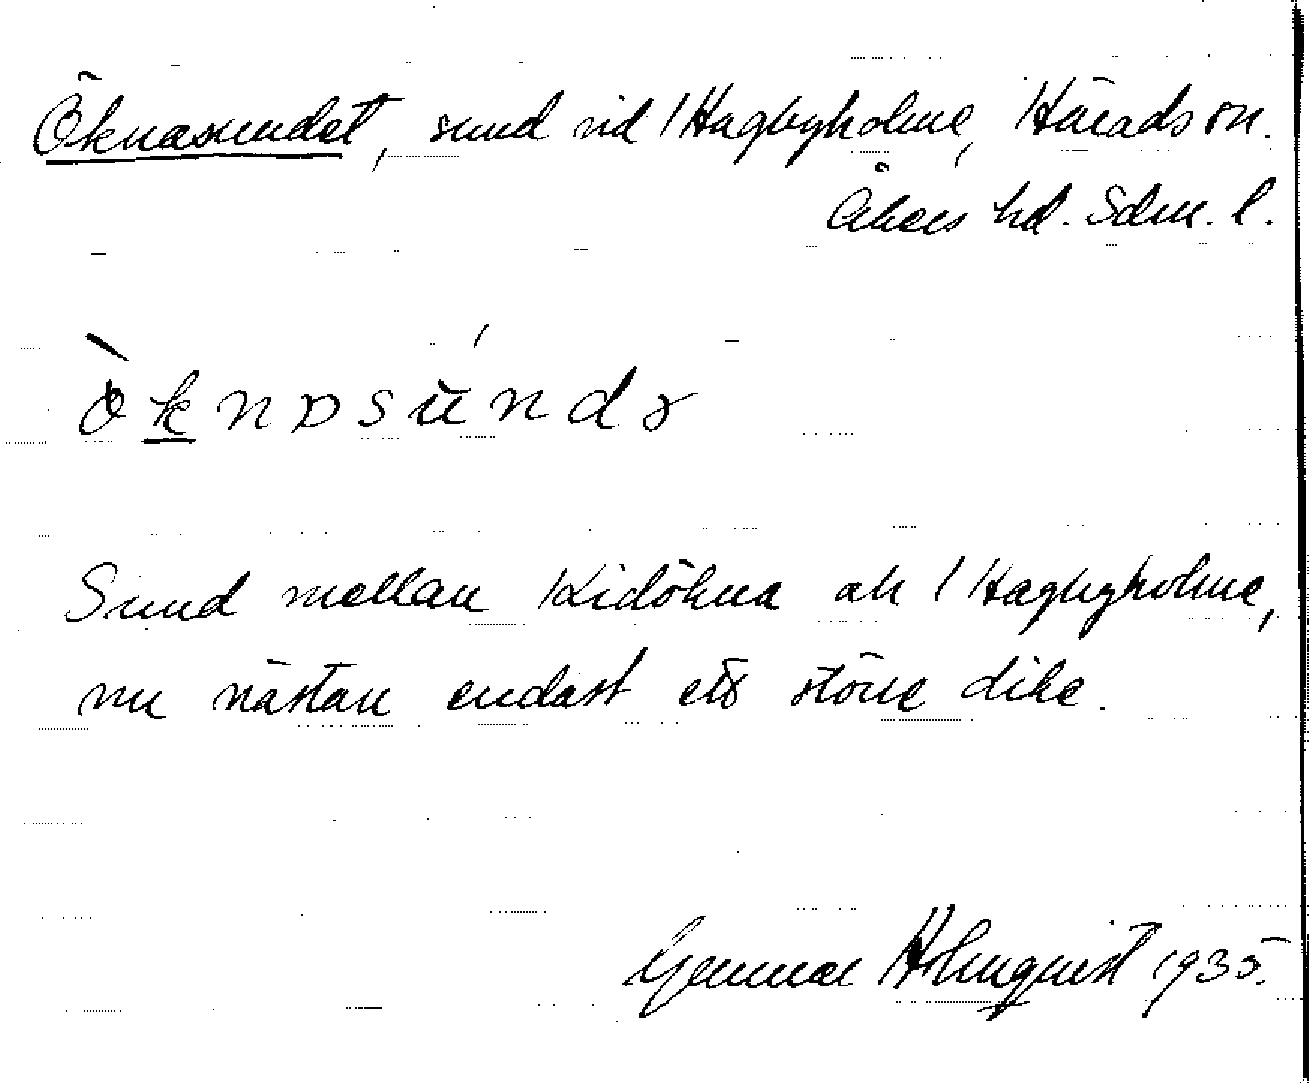 Öknasundet, sund vid Hagbyholme, Härads sn.
Åkers hd. Sdm. l.
Sund mellan Kidökna och Hagbyholme,
nu nästan endast ett större dike.
Gunnar Holmquist 1935.